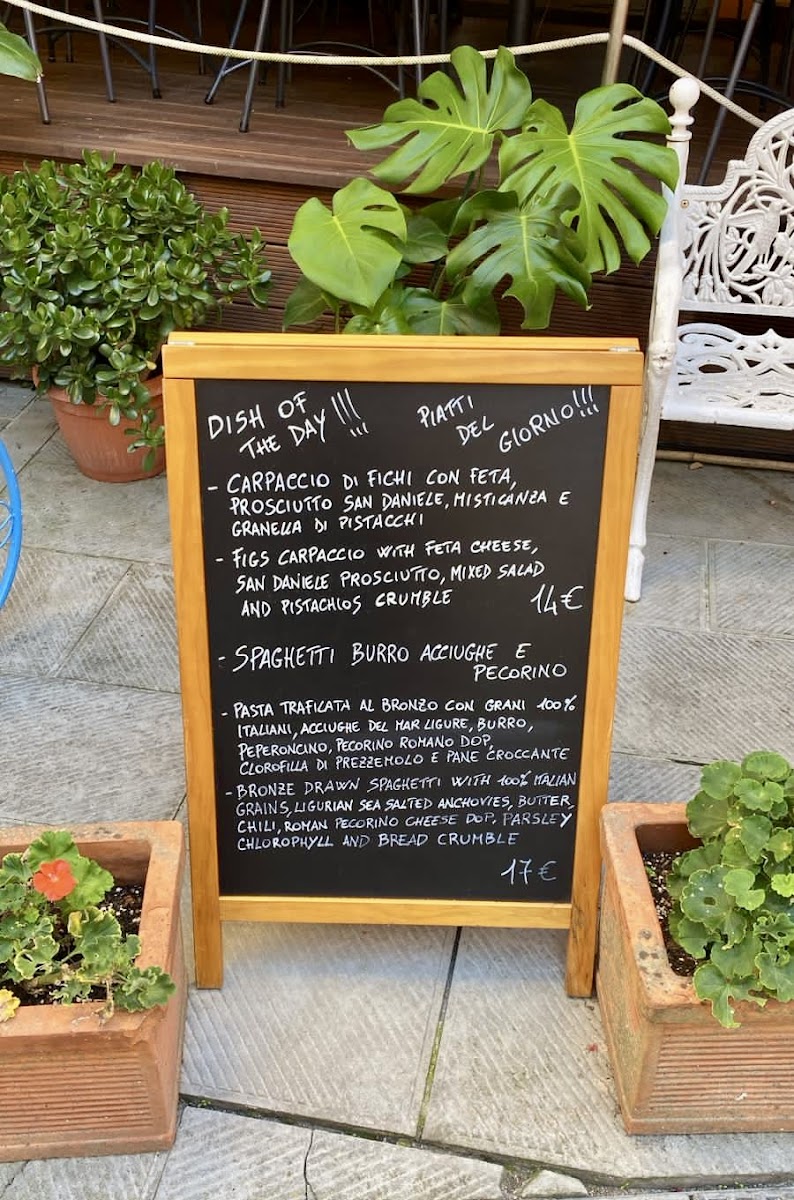 DISH OF
THE DAY!!!
PIATTI
DEL
GIORNO!!!
- CARPACCIO DI FICHI CON FETA,
PROSCIUTTO SAN DANIELE, MISTICANZA E
GRANELLA DI PISTACCHI
- FIGS CARPACCIO WITH FETA CHEESE,
SAN DANIELE PROSCIUTTO, MIXED SALAD
AND PISTACHIOS CRUMBLE 14€
- SPAGHETTI BURRO ACCIUGHE E
PECORINO
- PASTA TRAFILATA AL BRONZO CON GRANI 100%
ITALIANI, ACCIUGHE DEL MAR LIGURE, BURRO,
PEPERONCINO, PECORINO ROMANO DOP,
CLOROFILLA DI PREZZEMOLO E PANE CROCCANTE
- BRONZE DRAWN SPAGHETTI WITH 100% ITALIAN
GRAINS, LIGURIAN SEA SALTED ANCHOVIES, BUTTER,
CHILI, ROMAN PECORINO CHEESE DOP, PARSLEY
CHLOROPHYLL AND BREAD CRUMBLE
17€